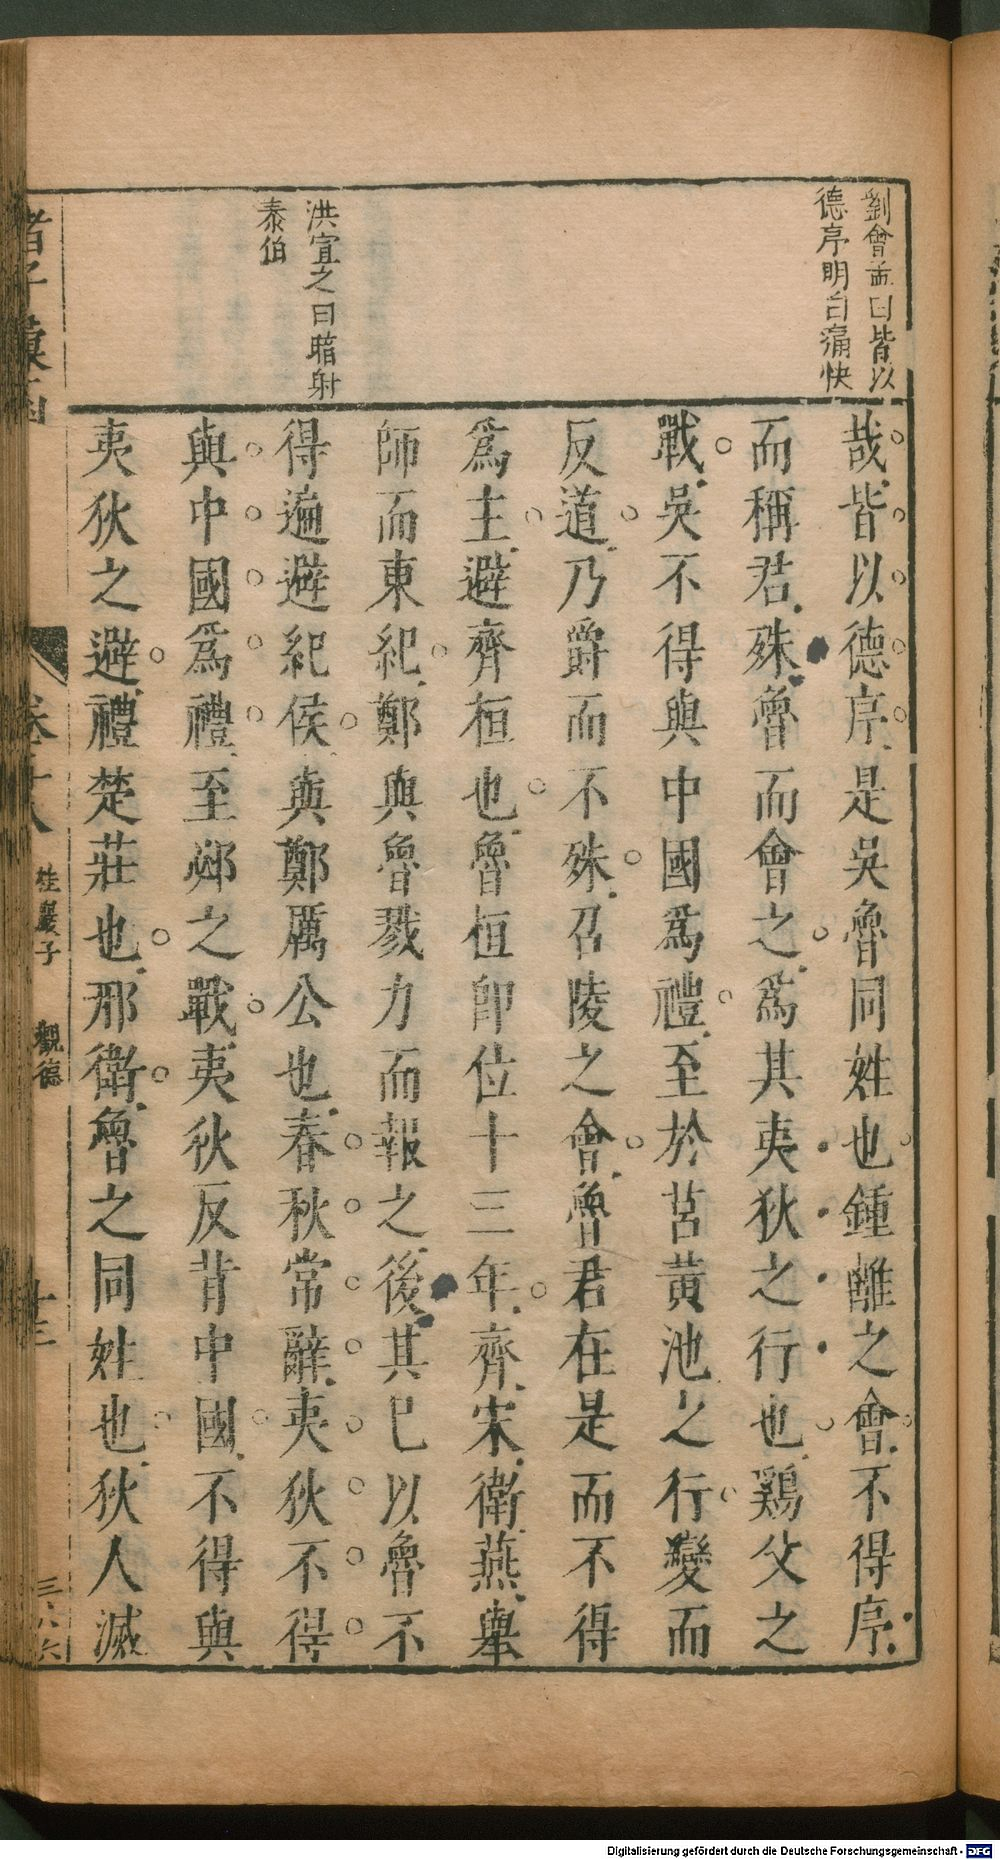 劉會孟曰皆以
德序明白痛快
洪宜之曰暗射
泰伯
哉皆以德序是吳魯同姓也鍾離之會不得序
而稱君殊魯而會之爲其夷狄之行也鷄父之
戰吳不得與中國爲禮至於莒黃池之行變而
反道乃爵而不殊召陵之會魯君在是而不得
爲主避齊桓也魯桓即位十三年齊宋衛燕舉
師而東紀鄭與魯戮力而報之後其已以魯不
得遍避紀侯與鄭厲公也春秋常辭夷狄不得
與中國爲禮至邲之戰夷狄反背中國不得與
夷狄之避禮楚莊也邢衛魯之同姓也狄人滅
諸子彙函
卷十八
桂巖子
觀德
十三
Digitalisierung gefördert durch die Deutsche Forschungsgemeinschaft - DFG